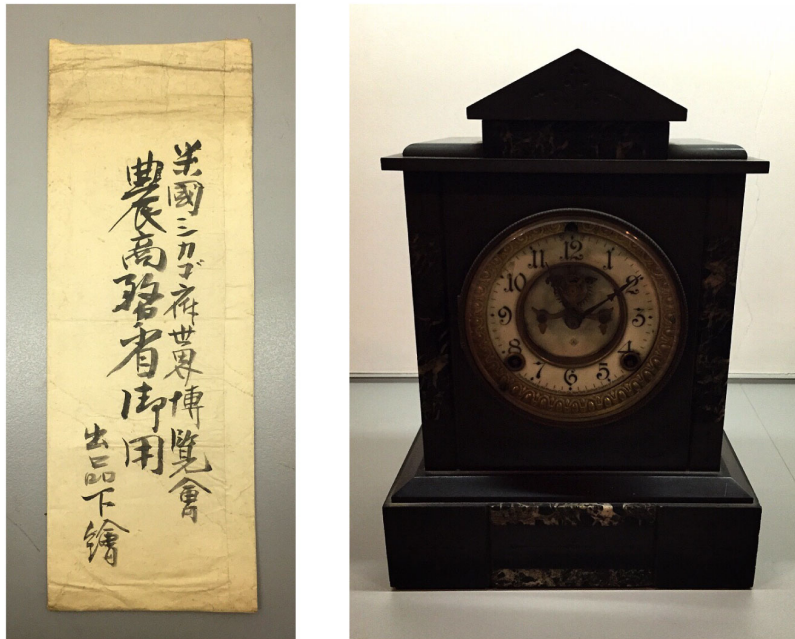 米國シカゴ府世界博覧會
農商務省御用
出品下繪
12
1
2
3
4
5
6
7
8
9
10
11